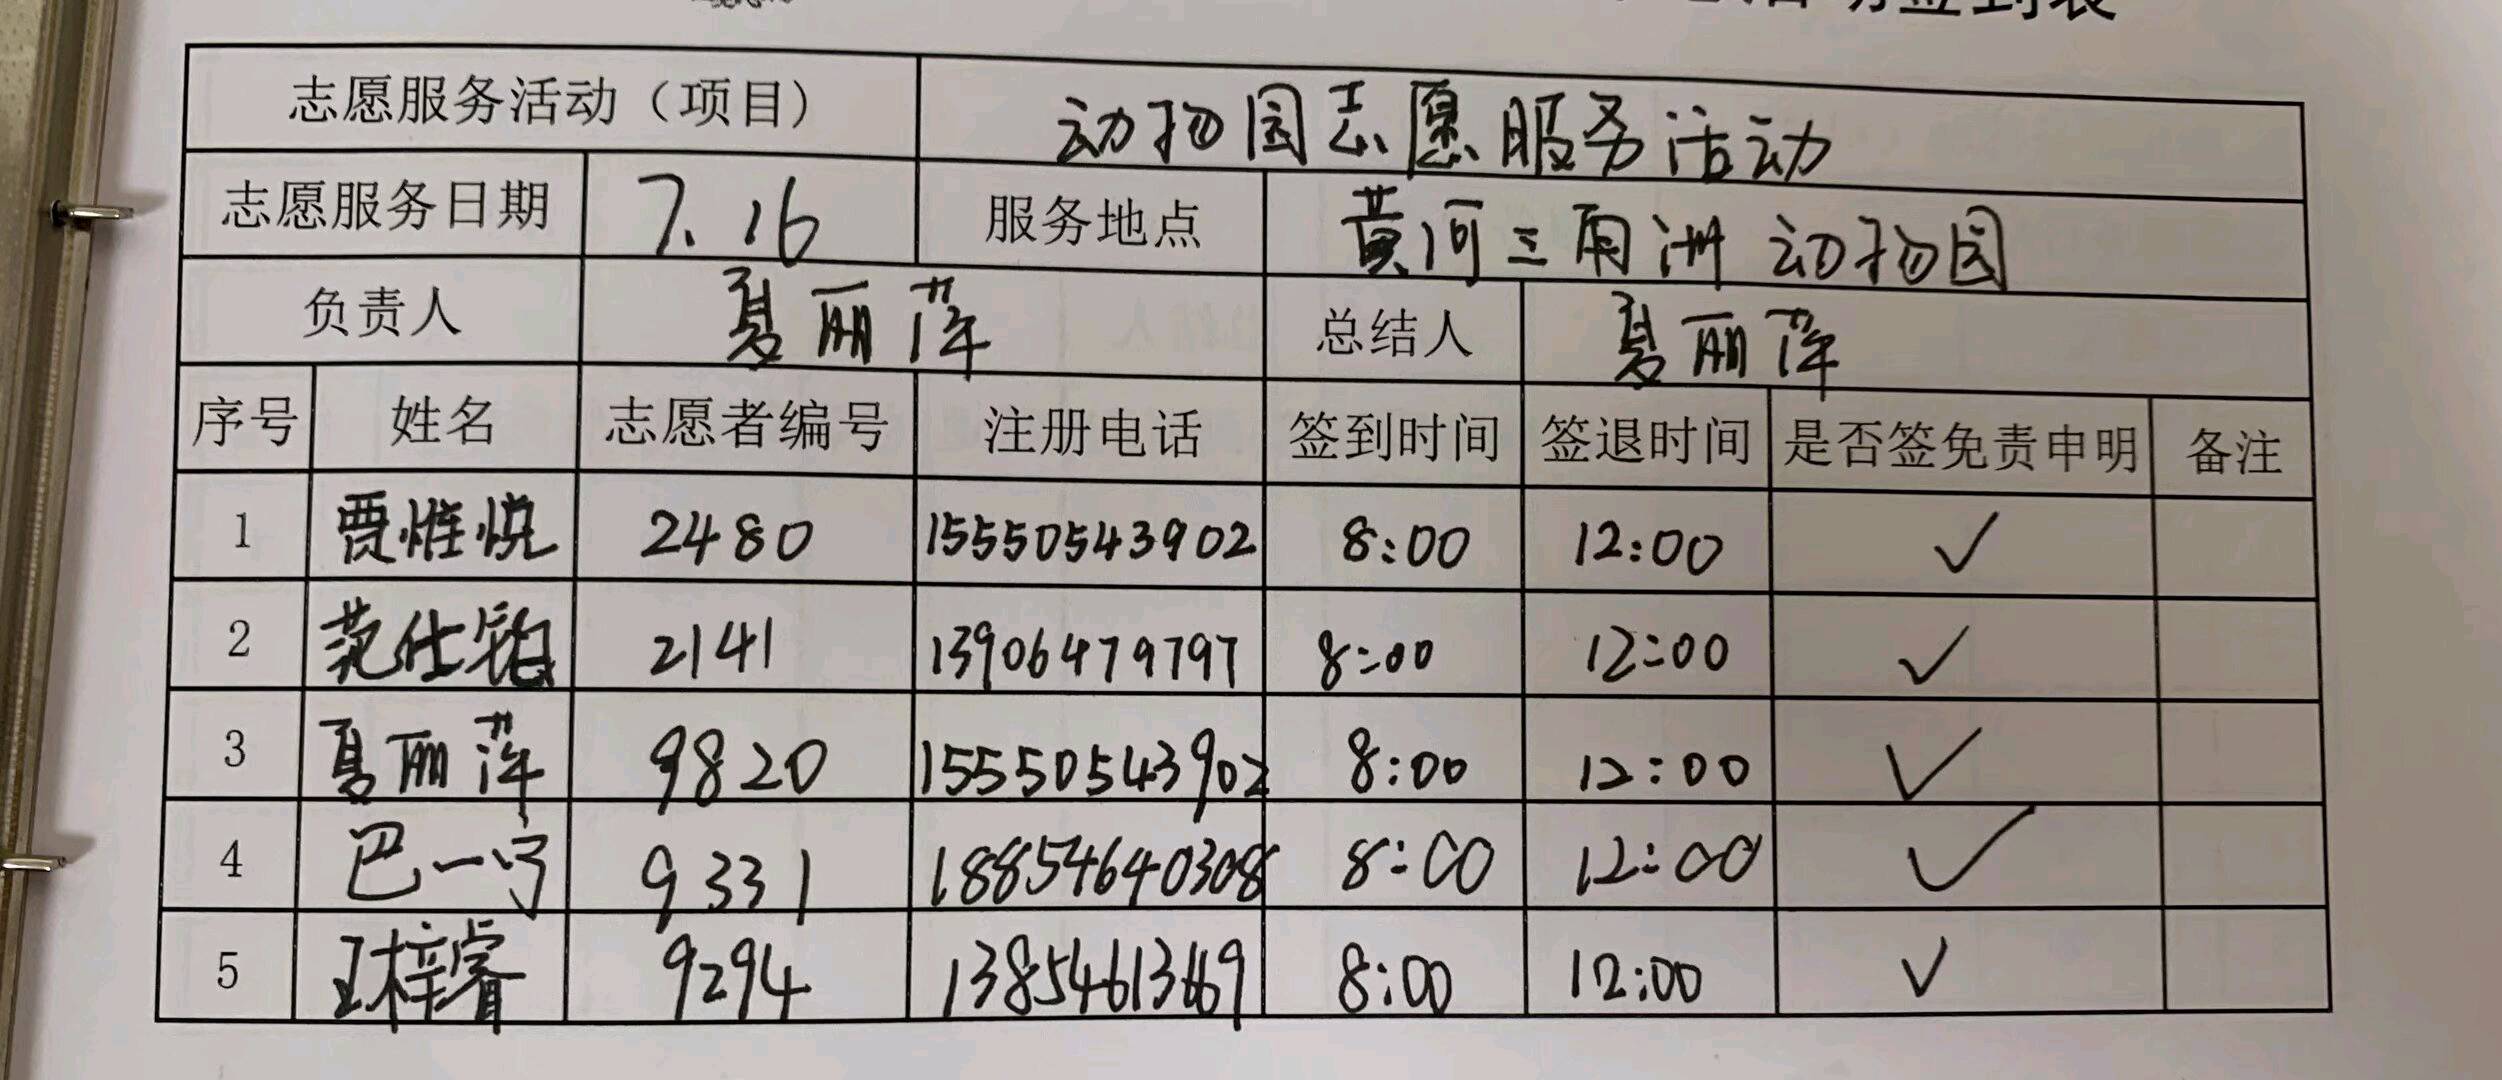 活动签到表
志愿服务活动（项目） 动物园志愿服务活动
志愿服务日期 7.16 服务地点 黄河三角洲 动物园
负责人 夏丽萍 总结人 夏丽萍
序号 姓名 志愿者编号 注册电话 签到时间 签退时间 是否签免责申明 备注
1 贾惟悦 2480 15550543902 8:00 12:00 ✓
2 范仕铂 2141 13906479797 8:00 12:00 ✓
3 夏丽萍 9820 15550543902 8:00 12:00 ✓
4 巴一宁 9331 18854640308 8:00 12:00 ✓
5 王梓睿 9294 13854613669 8:00 12:00 ✓